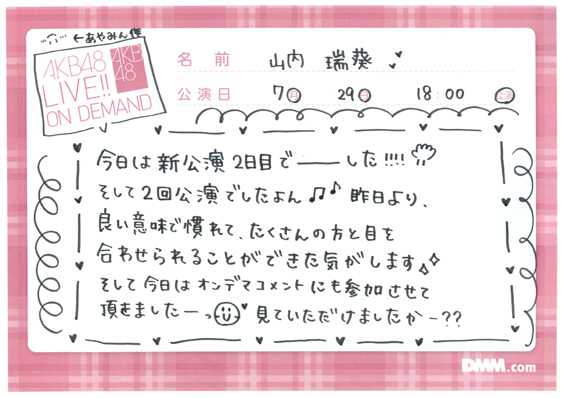 ←あやみん作
AKB48
LIVE!!
ON DEMAND
AKB
48
名前 山内 瑞葵
公演日 7月 29日 18:00 公演
今日は新公演2日目で――した!!!!
そして2回公演でしたよん♫♪ 昨日より、
良い意味で慣れて、たくさんの方と目を
合わせられることができた気がします
そして今日はオンデマコメントにも参加させて
頂きましたーっ 見ていただけましたかー??
DMM.com